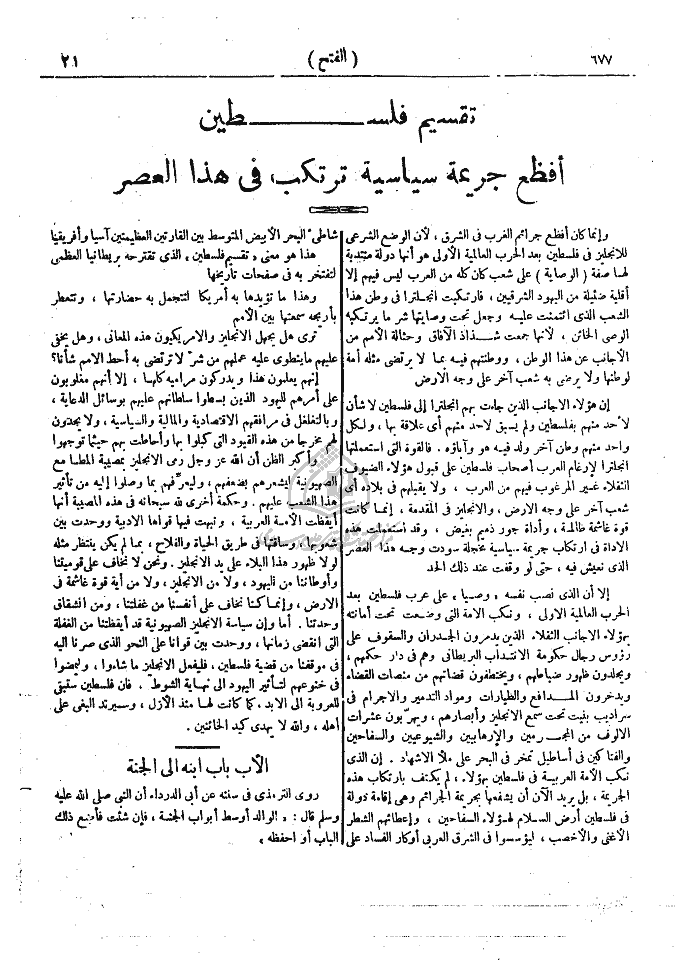 ٦٧٧
( الفتح )
٢١
تقسيم فلسـطين
أفظع جريمة سياسية ترتكب فى هذا العصر
وإنما كان أفظع جرائم الغرب فى الشرق، لأن الوضع الشرعى
للانجليز فى فلسطين بعد الحرب العالمية الأولى هو أنها دولة منتدبة
لها صفة (الوصاية) على شعب كان كله من العرب ليس فيهم إلا
أقلية ضئيلة من اليهود الشرقيين، فارتكبت انجلترا فى وطن هذا
الشعب الذى ائتمنت عليه وجعل تحت وصايتها شر ما يرتكبه
الوصى الخائن، لأنها جمعت شذاذ الآفاق وحثالة الأمم من
الأجانب عن هذا الوطن، ووطنتهم فيه بما لا يرتضى مثله أمة
لوطنها ولا يرضى به شعب آخر على وجه الارض
إن هؤلاء الاجانب الذين جاءت بهم انجلترا إلى فلسطين لا شأن
لأحد منهم بفلسطين ولم يسبق لاحد منهم أى علاقة بها، ولكل
واحد منهم وطن آخر ولد فيه هو وآباؤه. فالقوة التى استعملتها
انجلترا لارغام العرب أصحاب فلسطين على قبول هؤلاء الضيوف
الثقلاء غير المرغوب فيهم من العرب، ولا يقبلهم فى بلاده أى
شعب آخر على وجه الارض، والانجليز فى المقدمة، إنما كانت
قوة غاشمة ظالمة، وأداة جور ذميم بغيض، وقد استعملت هذه
الاداة فى ارتكاب جريمة سياسية مخجلة سودت وجه هذا العصر
الذى نعيش فيه، حتى لو وقفت عند ذلك الحد
إلا أن الذى نصب نفسه «وصيا» على عرب فلسطين بعد
الحرب العالمية الاولى، ونكب الامة التى وضعت تحت أمانته
بهؤلاء الاجانب الثقلاء الذين يدمرون الجدران والسقوف على
رؤوس رجال حكومة الانتداب البريطانى وهم فى دار حكمهم،
ويجلدون ظهور ضباطهم، ويختطفون قضاتهم من منصات القضاء
ويدخرون المدافع والطيارات ومواد التدمير والاجرام فى
سراديب بنيت تحت سمع الانجليز وأبصارهم، ويهربون عشرات
الالوف من المجرمين والإرهابيين والشيوعيين والسفاحين
والفتاكين فى أساطيل تمخر فى البحر على ملأ الاشهاد. إن الذى
نكب الأمة العربية فى فلسطين بهؤلاء، لم يكتف بارتكاب هذه
الجريمة، بل يريد الآن أن يشفعها بجريمة الجرائم وهى إقامة دولة
فى فلسطين أرض السلام لهؤلاء السفاحين، وإعطائهم الشطر
الأغنى والأخصب، ليؤسسوا فى الشرق العربى أوكار الفساد على
شاطئ البحر الأبيض المتوسط بين القارتين العظيمتين آسيا وأفريقيا
هذا هو معنى «تقسيم فلسطين» الذى تقترحه بريطانيا العظمى
لتفتخر به فى صفحات تاريخها
وهذا ما تؤيدها به أمريكا لتتجمل به حضارتها، وتتعطر
بأريجه سمعتها بين الأمم
ترى هل يجهل الانجليز والامريكيون هذه المعانى، وهل يخفى
عليهم ما ينطوى عليه عملهم من شر لا ترتضى به أحط الامم شأنا؟
إنهم يعلمون هذا ويدركون مراميه كلها، إلا أنهم مغلوبون
على أمرهم لليهود الذين بسطوا سلطانهم عليهم بوسائل الدعاية،
وبالتغلغل فى مرافقهم الاقتصادية والمالية والسياسية، ولا يجدون
لهم مخرجا من هذه القيود التى كبلوا بها وأحاطت بهم حيثما توجهوا
وأكبر الظن أن الله عز وجل رمى الانجليز بمصيبة المطامع
الصهيونية ليشعرهم بضعفهم، وليعرّفهم بما وصلوا إليه من تأثير
هذا الشعب عليهم. وحكمة أخرى لله سبحانه فى هذه المصيبة أنها
أيقظت الأمة العربية، ونبهت فيها قواها الادبية ووحدت بين
شعوبها، وساقتها فى طريق الحياة والفلاح، بما لم يكن ينتظر مثله
لولا ظهور هذا البلاء على يد الانجليز. ونحن لا نخاف على قوميتنا
وأوطاننا من اليهود، ولا من الانجليز، ولا من أية قوة غاشمة فى
الارض، وإنما كنا نخاف على أنفسنا من غفلتنا، ومن انشقاق
وحدتنا. أما وإن سياسة الانجليز الصهيونية قد أيقظتنا من الغفلة
التى انقضى زمانها، ووحدت بين قوانا على النحو الذى صرنا اليه
فى موقفنا من قضية فلسطين، فليفعل الانجليز ما شاءوا، وليمضوا
فى خنوعهم لتأثير اليهود الى نهاية الشوط. فان فلسطين ستبقى
للعروبة الى الابد. كما كانت لها منذ الأزل، وسيرتد البغى على
أهله، والله لا يهدى كيد الخائنين.
الأب باب ابنه الى الجنة
روى الترمذى فى سننه عن أبى الدرداء أن النبى صلى الله عليه
وسلم قال: «الوالد أوسط أبواب الجنة، فإن شئت فأضع ذلك
الباب أو احفظه»